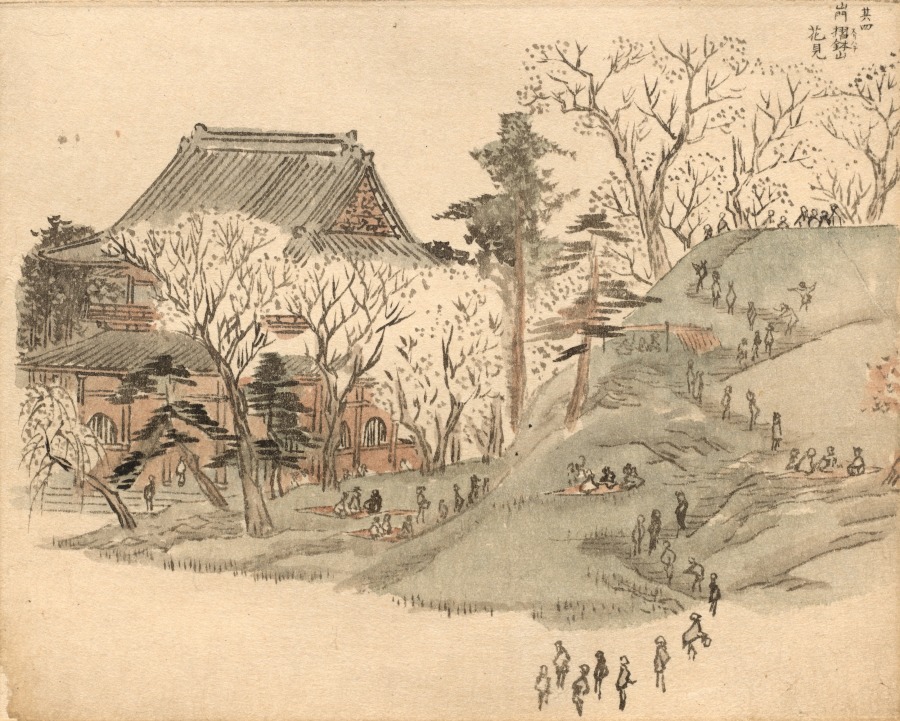 其四
山門 摺鉢山
花見